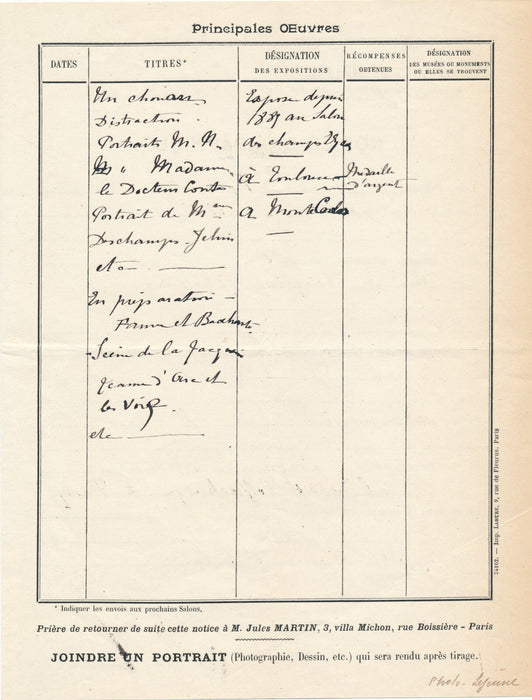 Principales Œuvres
DATES
TITRES*
DÉSIGNATION
DES EXPOSITIONS
RÉCOMPENSES
OBTENUES
DÉSIGNATION
DES MUSÉES OU MONUMENTS
OU ELLES SE TROUVENT
Un chouan
Distraction
Portraits M. N.
" Madame
le Docteur Conte
Portrait de Mme
Deschamps-Jehin
etc
En préparation
Faune et Bacchante
Scène de la Jacquerie
Jeanne d'Arc et
les Voix.
etc
Expose depuis
1889 au Salon
des champs Elysées
à Toulouse
à Monte Carlo
Médaille
d'argent
* Indiquer les envois aux prochains Salons.
54162. — Imp. LAHURE, 9, rue de Fleurus. Paris
Prière de retourner de suite cette notice à M. Jules MARTIN, 3, villa Michon, rue Boissière - Paris
JOINDRE UN PORTRAIT (Photographie, Dessin, etc.) qui sera rendu après tirage.
Photo - Lejeune